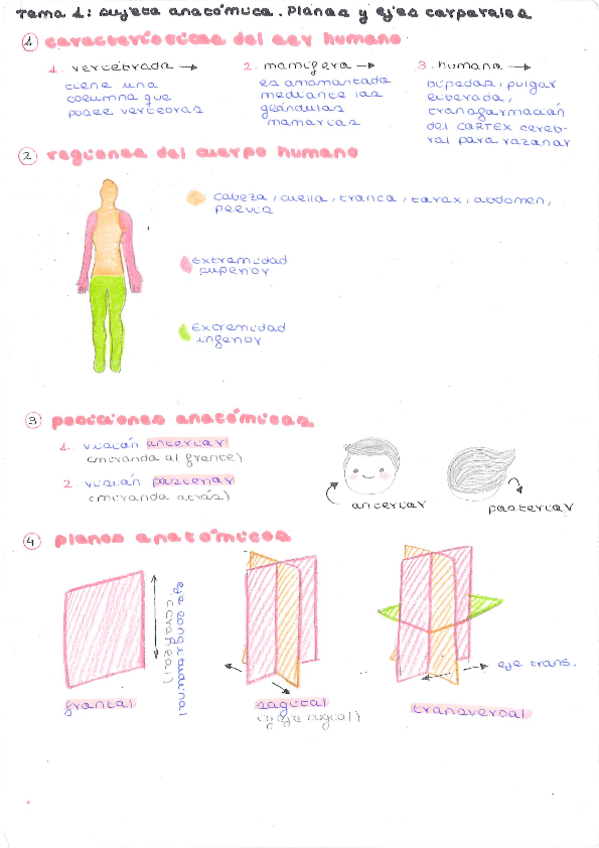 Tema 1: sujeto anatómico. Planos y ejes corporales
1 características del ser humano
1. vertebrado →
tiene una
columna que
posee vértebras
2. mamífero →
es amamantado
mediante las
glándulas
mamarias
3. humano →
bípedos, pulgar
liberado,
transformación
del CÓRTEX cereb-
ral para razonar
2 regiones del cuerpo humano
cabeza, cuello, tronco, tórax, abdomen,
pelvis
Extremidad
superior
Extremidad
inferior
3 posiciones anatómicas
1. visión anterior
(mirando al frente)
2. visión posterior
(mirando atrás)
anterior
posterior
4 planos anatómicos
eje longitudinal
frontal
sagital
eje trans.
transversal